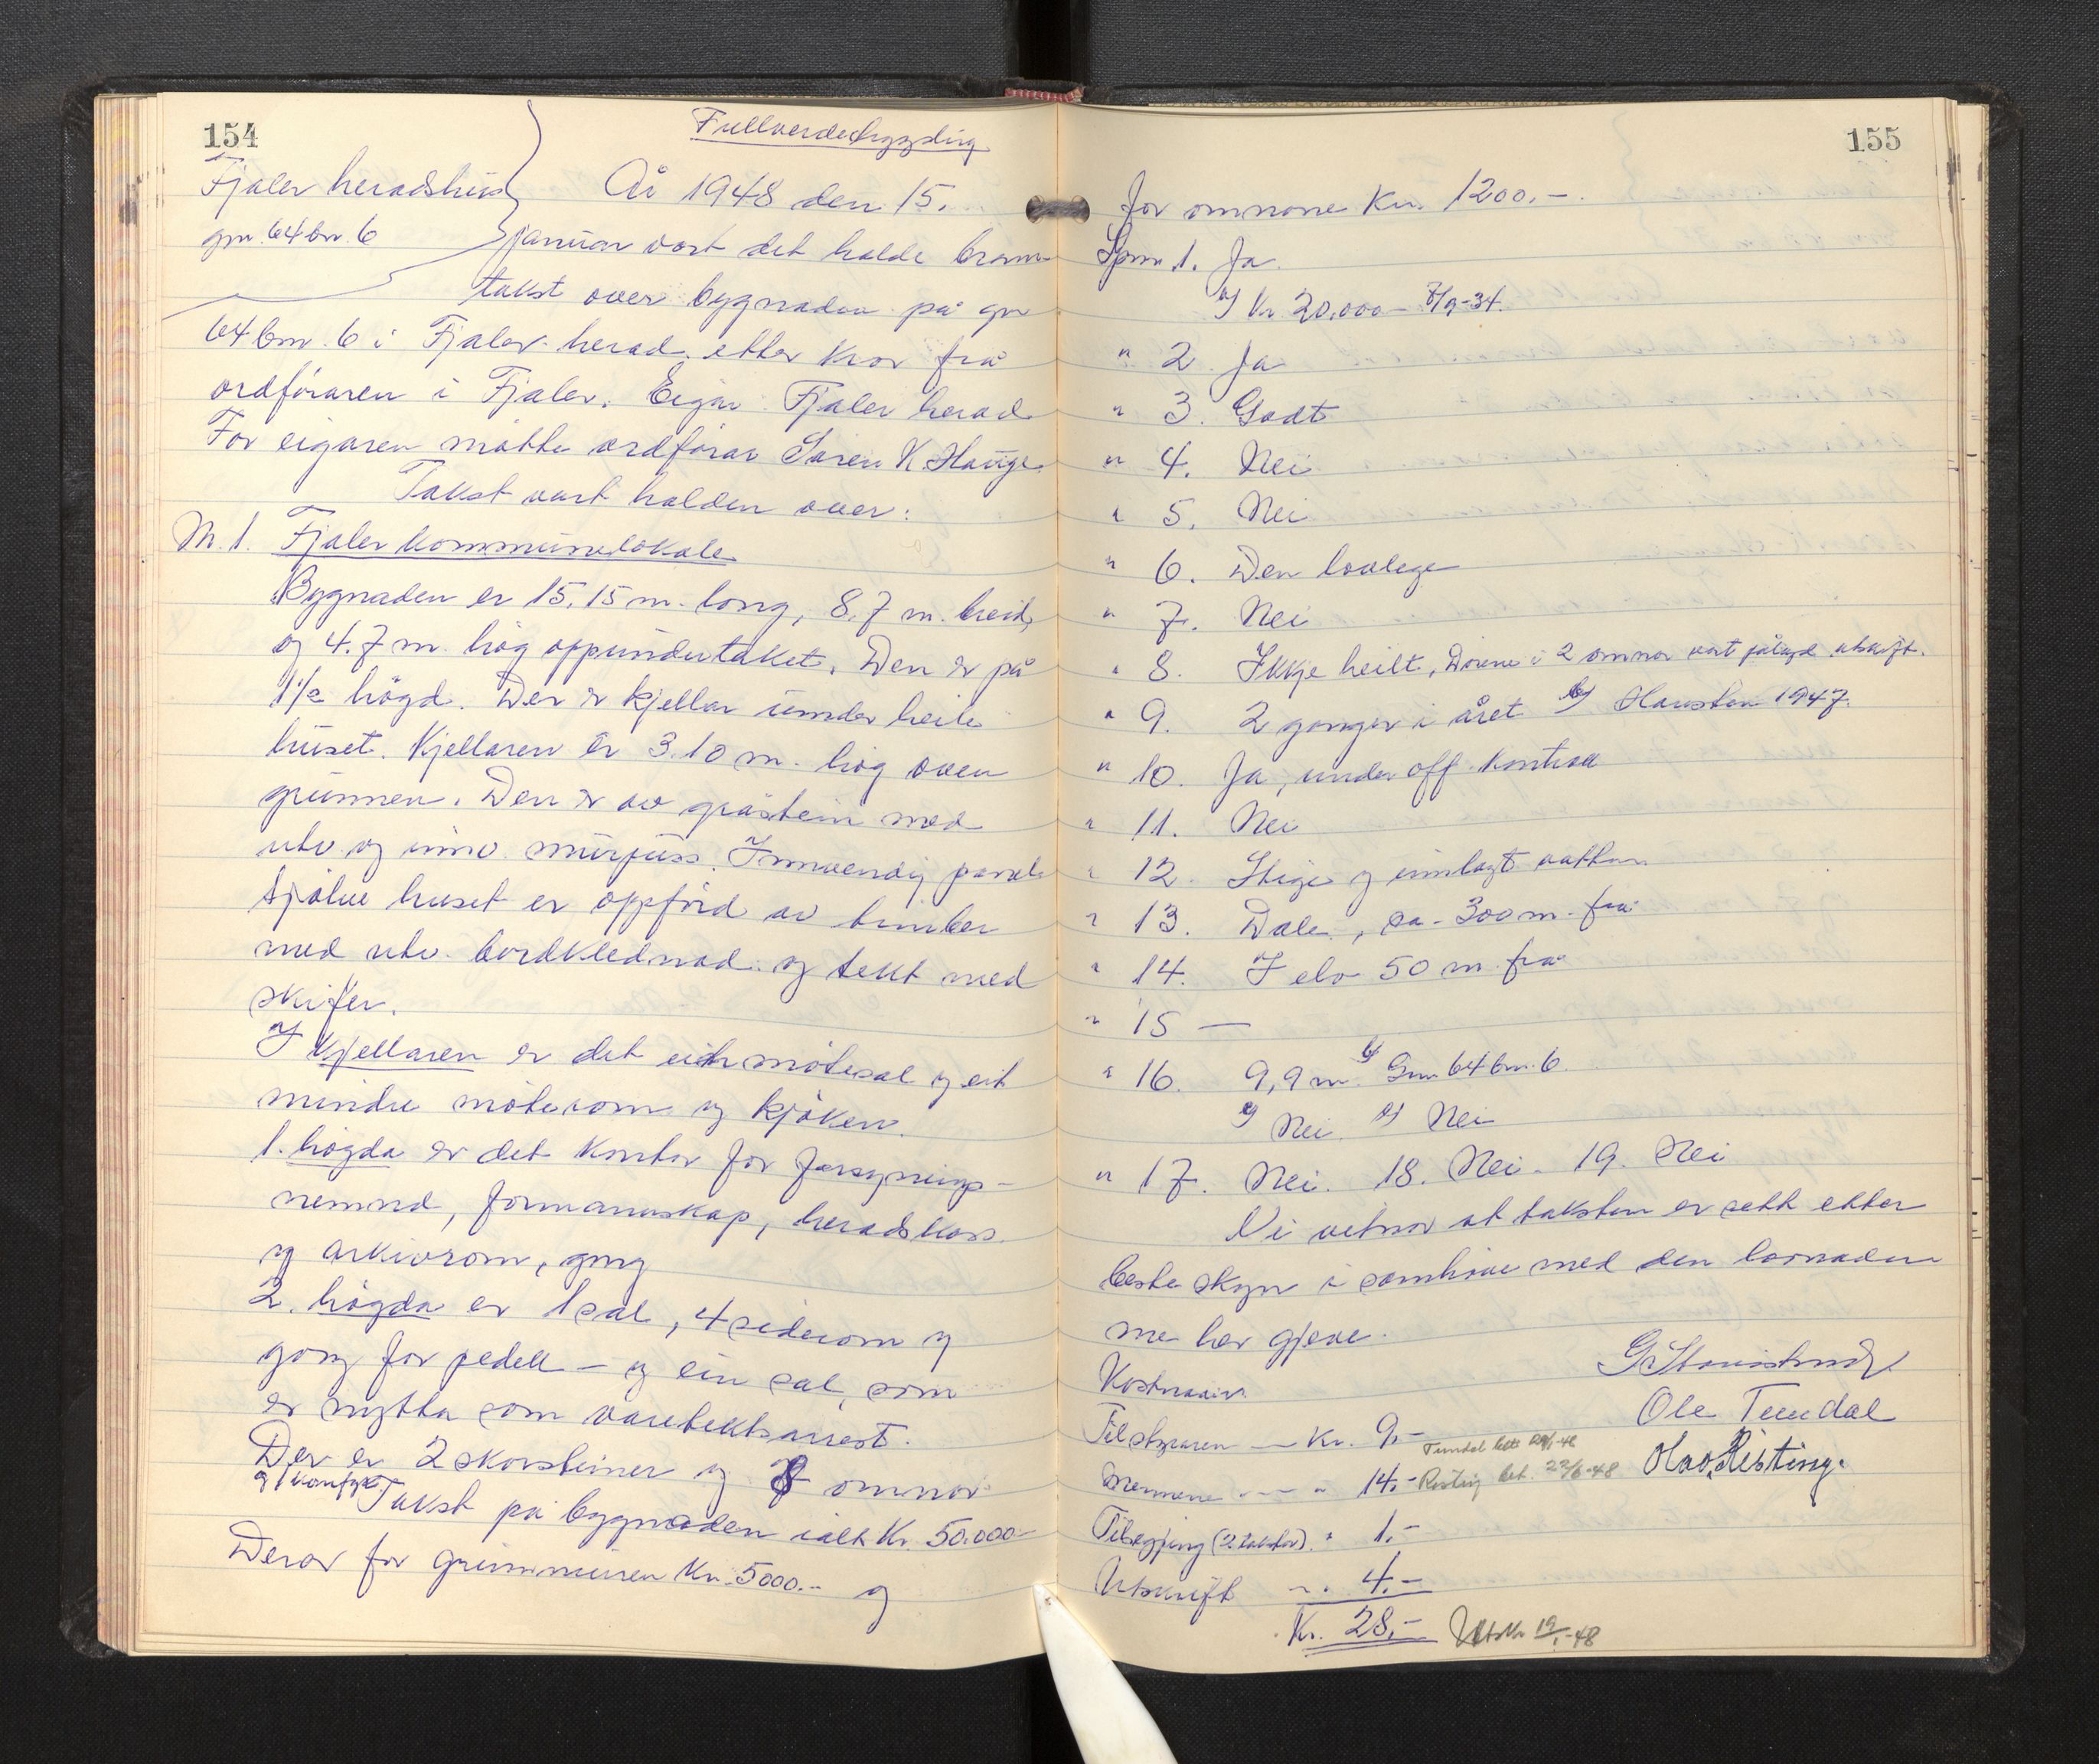 154
Fullverdebygging
Fjaler heradshus
gnr. 64 bnr. 6
År 1948 den 15.
januar vart det halde brann-
takst over bygnaden på gnr
64 bnr. 6 i Fjaler herad etter krav frå
ordføraren i Fjaler. Eigar Fjaler herad
For eigaren møtte ordførar Søren K. Hauge.
Takst vart halden over:
M. 1. Fjaler kommunelokale
Bygnaden er 15,15 m. lang, 8.7 m. breid,
og 4.7 m. høg oppunder taket. Den er på
1 1/2 høgd. Der er kjellar under heile
huset. Kjellaren er 3.10 m. høg over
grunnen. Den er av gråstein med
utv. og innv. murpuss. Innvendig panel
Sjølve huset er oppførd av timber
med utv. bordklednad og tekt med
skifer.
I kjellaren er det ein møtesal og eit
mindre møterom og kjøken.
1. høgda er det kontor for forsynings-
nemnd, formannskap, heradskass.
og arkivrom, gang
2. høgda er 1 sal, 4 siderom og
gang for pedell – og ein sal, som
er nytta som varetektsarrest.
Der er 2 skorsteiner og 8 omnar
og 1 komfyr
Takst på bygnaden ialt Kr. 50.000-
Derav for grunnmuren Kr. 5000.- og
155
for omnane Kr. 1200.-
Spm 1. Ja
a) Kr 20.000 - 8/9-34.
" 2 Ja
" 3. Godt
" 4. Nei
" 5. Nei
" 6. Den lovlege
" 7. Nei
" 8. Ikkje heilt, Dørene i 2 omnar vart pålagd utskift.
" 9. 2 gonger i året b) Hausten 1947.
" 10. Ja, under off. kontroll
" 11. Nei
" 12. Stige og innlagt vatten
" 13. Dale, ca. 300 m. frå
" 14. I elv 50 m. frå
" 15 —
" 16. 9,9 m. b) Gnr. 64 bnr. 6.
c) Nei. d) Nei
" 17. Nei. 18. Nei. 19. Nei
Vi vitnar at taksten er sett etter
beste skyn i samhøve med den lovnaden
me har gjeve.
Kostnader
Tilstyraren — Kr. 9,-
Ole Tundal
Tundal bet. -48
Mennene — " 14,- Risting bet. 22/6-48
Olav Risting.
Tilsegjing (2 takstar) " 1.-
Utskrift " 4.-
Kr. 28,- Utskr. 19/1-48